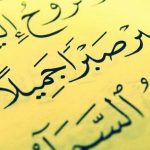 روحُ إلي
بر صَبْرًا جَمِيلًا
السَّمَآ